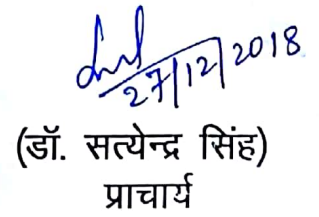 27/12/2018
(डॉ. सत्येन्द्र सिंह)
प्राचार्य